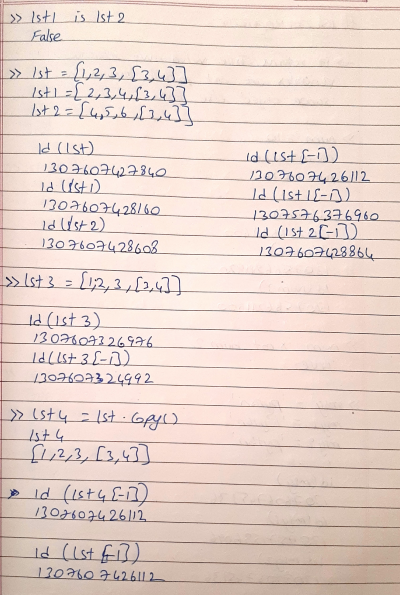 >> lst1 is lst2
False
>> lst = [1,2,3, [3,4]]
lst1 = [2,3,4, [3,4]]
lst2 = [4,5,6, [3,4]]
id (lst)
1307607427840
id (lst1)
1307607428160
id (lst2)
1307607428608
id (lst [-1])
1307607426112
id (lst1[-1])
1307576376960
id (lst2[-1])
1307607428864
>> lst3 = [1,2,3, [3,4]]
id (lst3)
1307607326976
id (lst3 [-1])
1307607324992
>> lst4 = lst.copy()
lst4
[1,2,3, [3,4]]
id (lst4 [-1])
1307607426112
id (lst [-1])
1307607426112